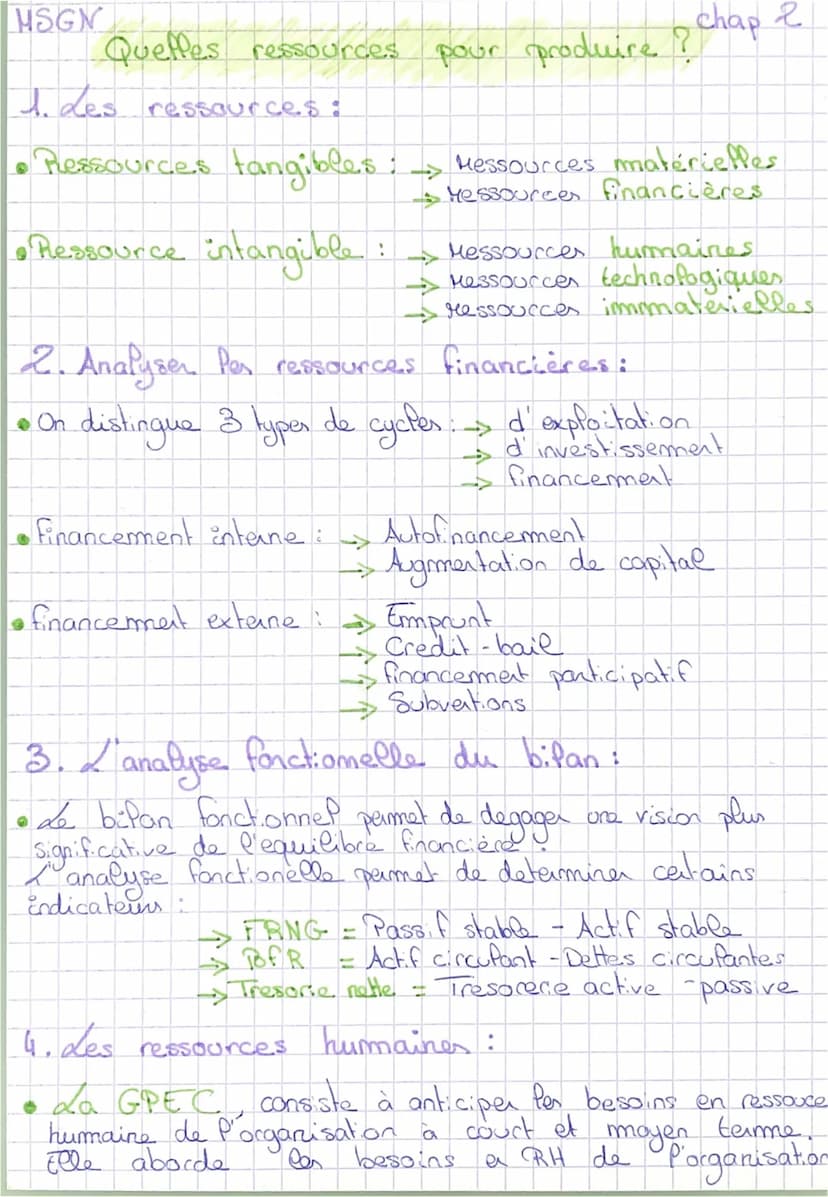 MSGN chap 2
Quelles ressources pour produire ?
1. Les ressources :
• Ressources tangibles : → ressources matérielles
→ ressources financières
• Ressource intangible : → ressources humaines
→ ressources technologiques
→ ressources immatérielles
2. Analyser les ressources financières :
• On distingue 3 types de cycles : → d'exploitation
→ d'investissement
→ financement
• Financement interne : → Autofinancement
→ Augmentation de capital
• financement externe : → Emprunt
→ Credit-bail
→ financement participatif
→ Subventions
3. L'analyse fonctionnelle du bilan :
• Le bilan fonctionnel permet de degager une vision plus
significative de l'equilibre financière.
L'analyse fonctionelle permet de determiner certains
indicateurs :
→ FRNG = Passif stable - Actif stable
→ BFR = Actif circulant - Dettes circulantes
→ Tresorie nette = Trésorerie active - passive
4. Les ressources humaines :
• La GPEC, consiste à anticiper les besoins en ressouce
humaine de l'organisation à court et moyen terme.
Elle aborde les besoins en RH de l'organisation